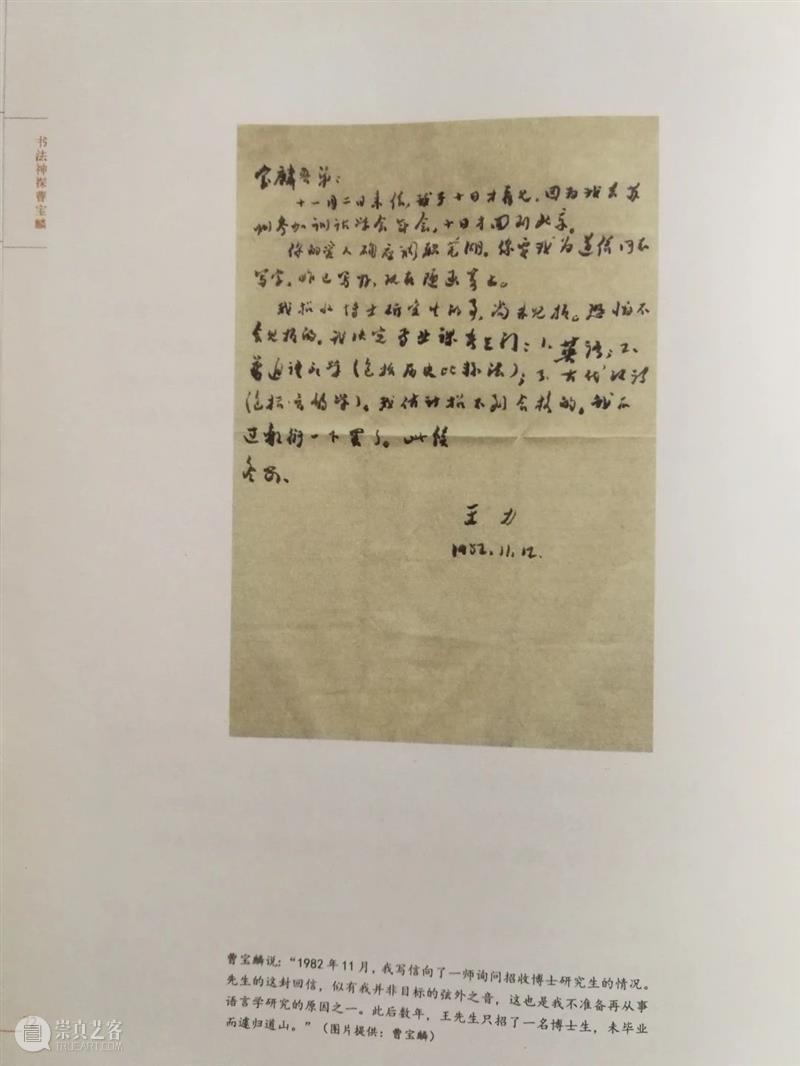 书法神探曹宝麟
宝麟吾弟：
十一月二日来信，我于十日才看见，因为我去苏
州参加训诂学会年会，十日才回到北京。
你的爱人确应调职芜湖。你要我为
写字，昨已写好，现在随函寄去。
我招收博士研究生的事，尚未见报。恐怕不
会见报的。我决定专业课考三门：1. 英语；2.
普通语言学（包括历史比较法）；3. 古代汉语
（包括音韵学）。我估计招不到合格的。我不
过敷衍一下罢了。此复
冬安、
王力
1982.11.12.
曹宝麟说：“1982年11月，我写信向了一师询问招收博士研究生的情况。
先生的这封回信，似有我并非目标的弦外之音，这也是我不准备再从事
语言学研究的原因之一。此后数年，王先生只招了一名博士生，未毕业
而遽归道山。”（图片提供：曹宝麟）
崇真艺客